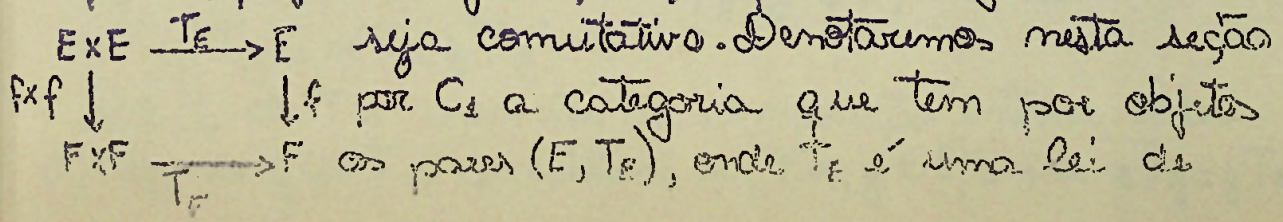 E×E T_E→ E seja comutativo. Denotaremos nesta seção
f×f ↓ ↓f por C₁ a categoria que tem por objetos
F×F →T_F F os pares (E, T_E), onde T_E é uma lei de